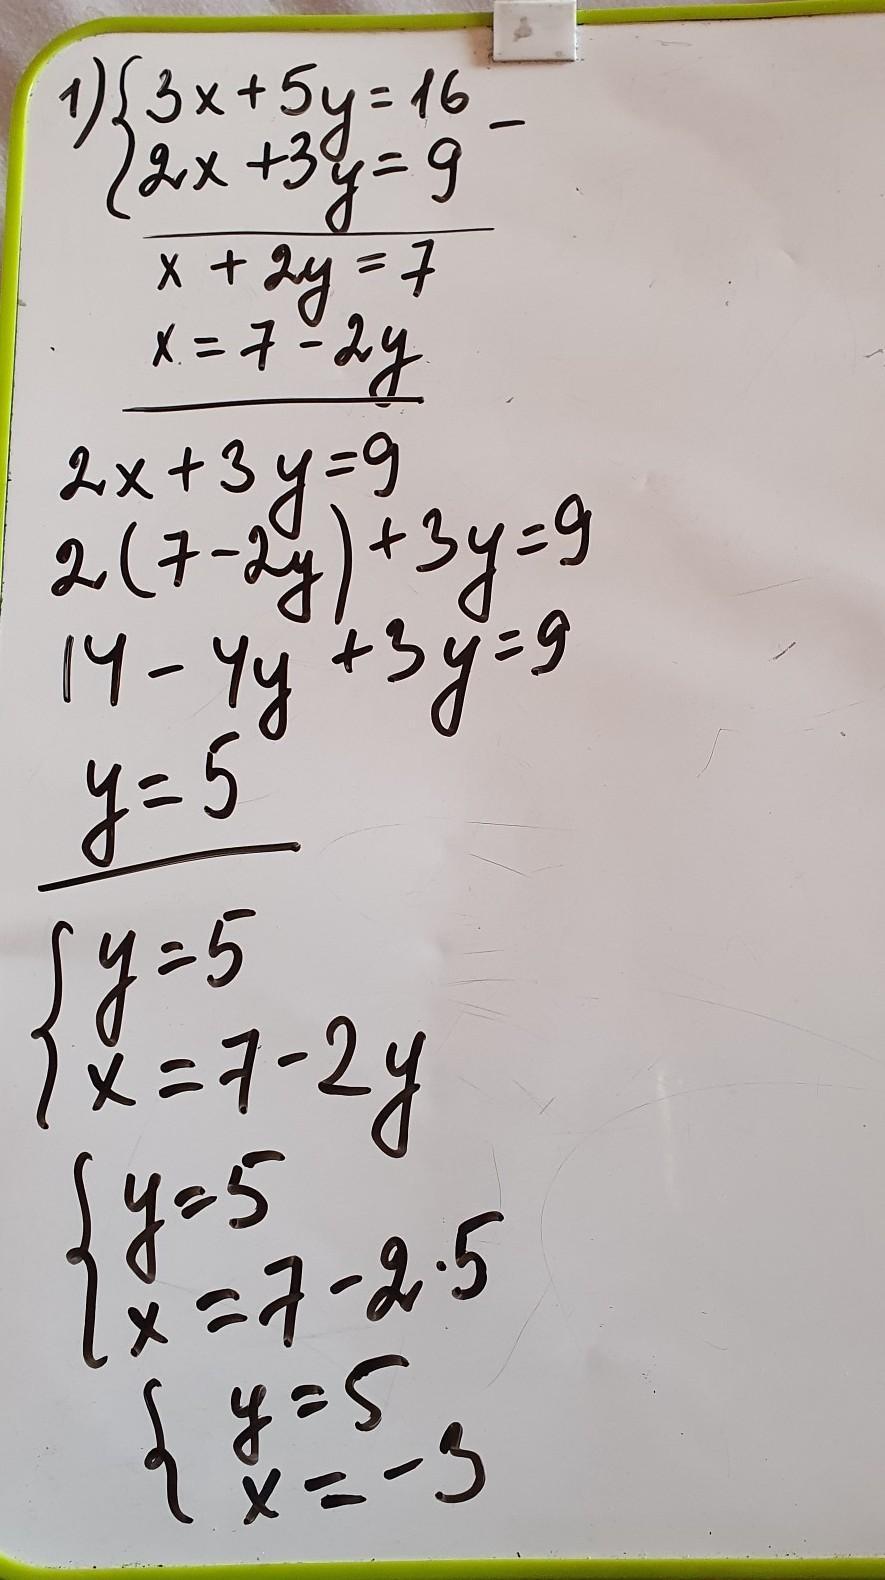 1) { 3x + 5y = 16 -
2x + 3y = 9
x + 2y = 7
x = 7 - 2y
2x + 3y = 9
2(7 - 2y) + 3y = 9
14 - 4y + 3y = 9
y = 5
{ y = 5
x = 7 - 2y
{ y = 5
x = 7 - 2·5
{ y = 5
x = -3